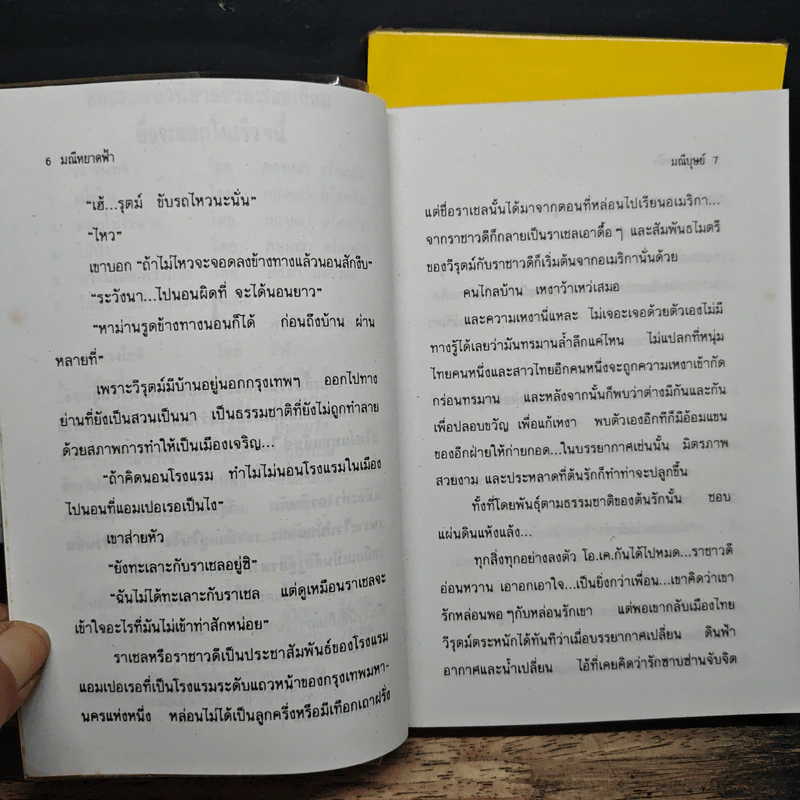 6 มณีหยาดฟ้า
“เฮ้...รุตม์ ขับรถไหวนะนั่น”
“ไหว”
เขาบอก “ถ้าไม่ไหวจะจอดลงข้างทางแล้วนอนสักงีบ”
“ระวังนา...ไปนอนผิดที่ จะได้นอนยาว”
“หาม่านรูดข้างทางนอนก็ได้ ก่อนถึงบ้าน ผ่าน
หลายที่”
เพราะวีรุตม์มีบ้านอยู่นอกกรุงเทพฯ ออกไปทาง
ย่านที่ยังเป็นสวนเป็นนา เป็นธรรมชาติที่ยังไม่ถูกทำลาย
ด้วยสภาพการทำให้เป็นเมืองเจริญ...
“ถ้าคิดนอนโรงแรม ทำไมไม่นอนโรงแรมในเมือง
ไปนอนที่แอมเปอเรอเป็นไง”
เขาส่ายหัว
“ยังทะเลาะกับราเชลอยู่ซิ”
“ฉันไม่ได้ทะเลาะกับราเชล แต่ดูเหมือนราเชลจะ
เข้าใจอะไรที่มันไม่เข้าท่าสักหน่อย”
ราเชลหรือราชาวดีเป็นประชาสัมพันธ์ของโรงแรม
แอมเปอเรอที่เป็นโรงแรมระดับแถวหน้าของกรุงเทพมหา-
นครแห่งหนึ่ง หล่อนไม่ได้เป็นลูกครึ่งหรือมีเทือกเถาฝรั่ง
มณีบุษย์ 7
แต่ชื่อราเชลนั้นได้มาจากตอนที่หล่อนไปเรียนอเมริกา...
จากราชาวดีก็กลายเป็นราเชลเอาดื้อๆ และสัมพันธไมตรี
ของวีรุตม์กับราชาวดีก็เริ่มต้นจากอเมริกานั่นด้วย
คนไกลบ้าน เหงาว้าเหว่เสมอ
และความเหงานี่แหละ ไม่เจอะเจอด้วยตัวเองไม่มี
ทางรู้ได้เลยว่ามันทรมานล้ำลึกแค่ไหน ไม่แปลกที่หนุ่ม
ไทยคนหนึ่งและสาวไทยอีกคนหนึ่งจะถูกความเหงาเข้ากัด
กร่อนทรมาน และหลังจากนั้นก็พบว่าต่างมีกันและกัน
เพื่อปลอบขวัญ เพื่อแก้เหงา พบตัวเองอีกทีก็มีอ้อมแขน
ของอีกฝ่ายให้ก่ายกอด...ในบรรยากาศเช่นนั้น มิตรภาพ
สวยงาม และประหลาดที่ต้นรักก็ทำท่าจะปลูกขึ้น
ทั้งที่โดยพันธุ์ตามธรรมชาติของต้นรักนั้น ชอบ
แผ่นดินแห้งแล้ง...
ทุกสิ่งทุกอย่างลงตัว โอ.เค.กันได้ไปหมด...ราชาวดี
อ่อนหวาน เอาอกเอาใจ...เป็นยิ่งกว่าเพื่อน...เขาคิดว่าเขา
รักหล่อนพอๆกับหล่อนรักเขา แต่พอเขากลับเมืองไทย
วีรุตม์ตระหนักได้ทันทีว่าเมื่อบรรยากาศเปลี่ยน ดินฟ้า
อากาศและน้ำเปลี่ยน ไอ้ที่เคยคิดว่ารักซาบซ่านจับจิต